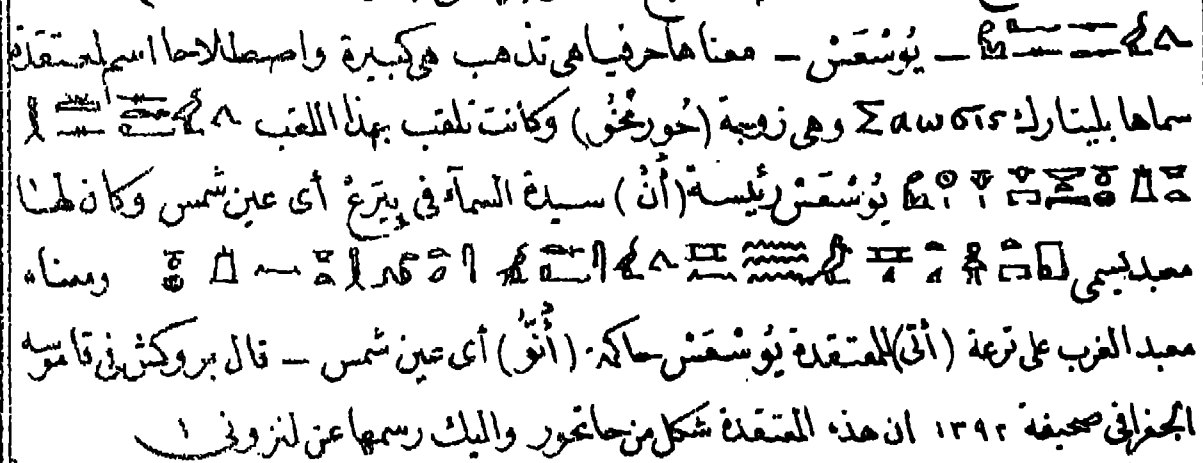 – يُوسْعَسْ – معناها حرفيا هى تذهب هى كبيرة واصطلاحا اسم لمعتقدة
سماها بليتارك Σαωσις وهى زوجة (حُورمَخُو) وكانت تلقب بهذا اللقب
يُوسْعَسْ رئيسة (أُنْ) سيدة السمآء فى پِيَرَعْ أى عين شمس وكان لها
معبد يسمى ومعناه
معبد الغرب على ترعة (أتى) للمعتقدة يُوسْعَسْ حاكمة (أُنُّو) أى عين شمس – قال بروكش فى قاموسه
الجغرافى صحيفة ١٣٩٢ ان هذه المعتقدة شكل من حاتحور واليك رسمها عن لنزونى